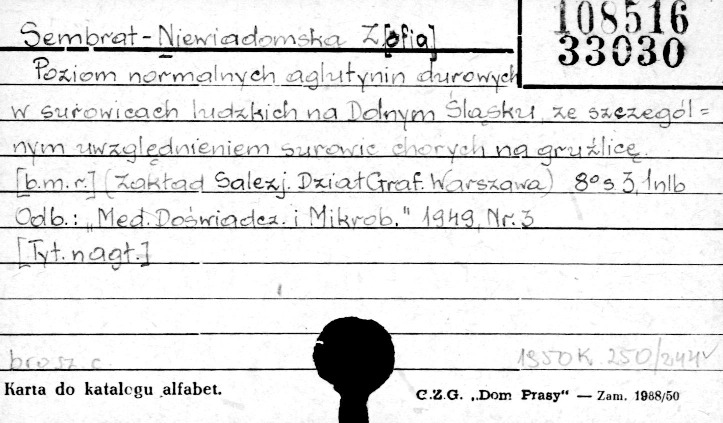 108516
33030
Sembrat-Niewiadomska Z[ofia]
Poziom normalnych aglutynin durowych
w surowicach ludzkich na Dolnym Śląsku, ze szczegól=
nym uwzględnieniem surowic chorych na gruźlicę.
[b.m.r.] (Zakład Salezj. Dział Graf. Warszawa) 8° s. 3, 1 nlb
Odb.: „Med. Doświadcz. i Mikrob." 1949, Nr. 3
[Tyt. nagł.]
brosz. c.
1950 K 250/244
Karta do katalogu alfabet.
C.Z.G. „Dom Prasy“ — Zam. 1988/50